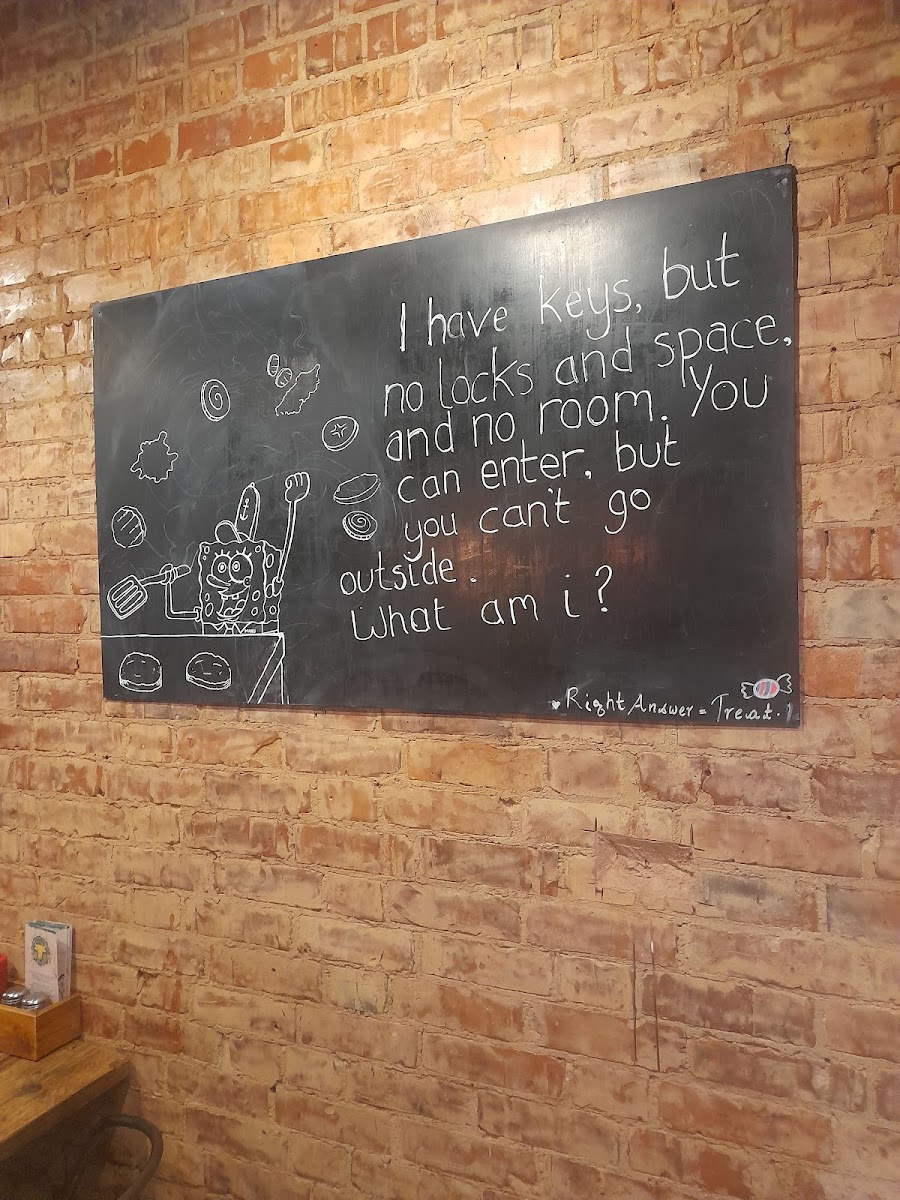 I have keys, but
no locks and space,
and no room. You
can enter, but
you can't go
outside.
What am i?
Right Answer = Treat.